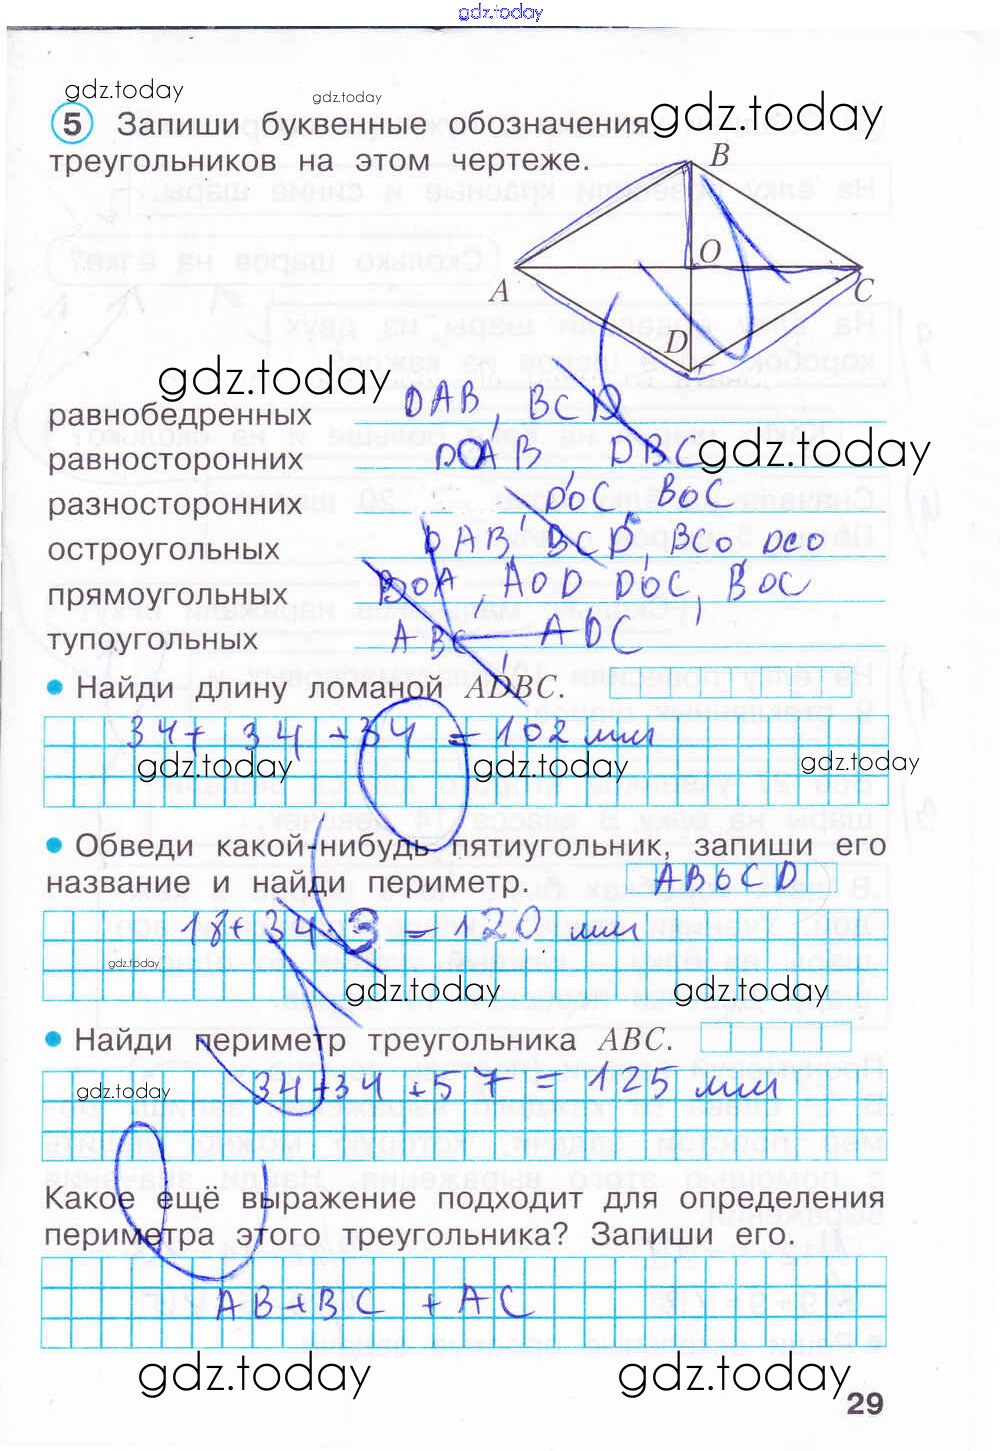 gdz.today
gdz.today
gdz.today
gdz.today
5 Запиши буквенные обозначения
треугольников на этом чертеже.
B
O
A
C
D
gdz.today
равнобедренных DAB, BCD
равносторонних DAB, DBC
gdz.today
разносторонних DOC BOC
остроугольных DAB, BCD, BCO DCO
прямоугольных BOA, AOD DOC, BOC
тупоугольных ABC, ADC
• Найди длину ломаной ADBC.
34+ 34 +34 = 102 мм
gdz.today gdz.today gdz.today
• Обведи какой-нибудь пятиугольник, запиши его
название и найди периметр. ABOCD
18+ 34 · 3 = 120 мм
gdz.today
gdz.today gdz.today
• Найди периметр треугольника ABC.
gdz.today
34+34+57 = 125 мм
Какое ещё выражение подходит для определения
периметра этого треугольника? Запиши его.
AB+BC +AC
gdz.today gdz.today
29